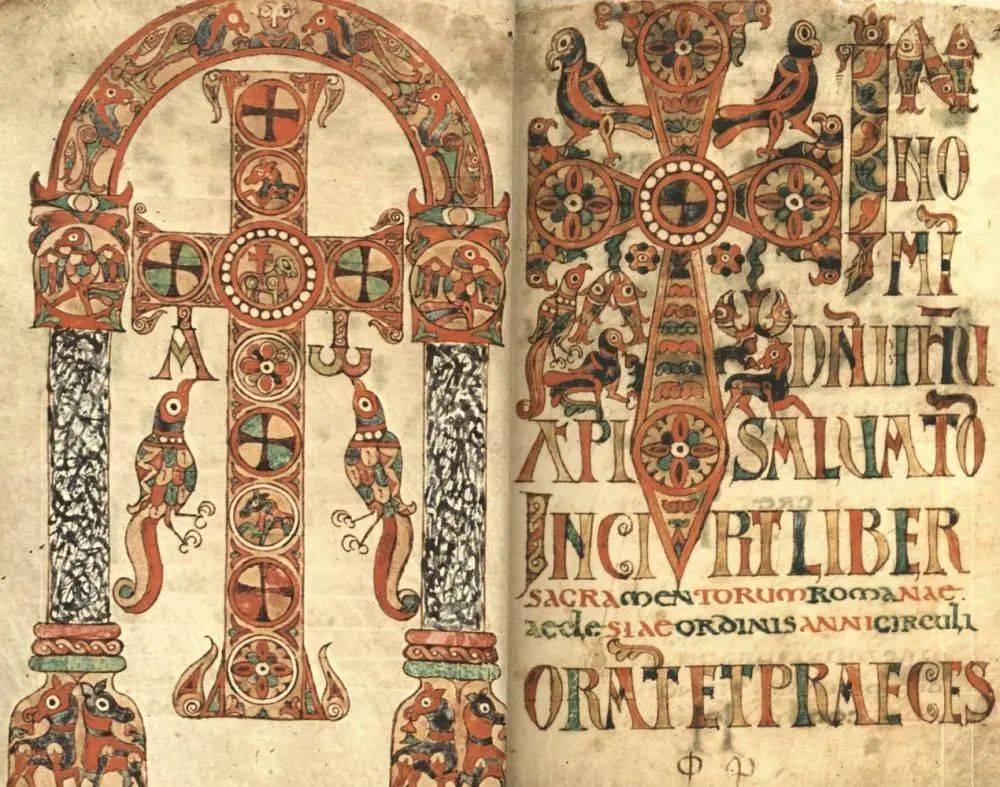 A ω
IN
NO
MĪ
DÑI IHU
XPI SALUATO
INCIPIT LIBER
SACRAMENTORUM ROMANAE
aecleSIAE ORDINIS ANNI CIRCULI
ORAT ET PRAECES